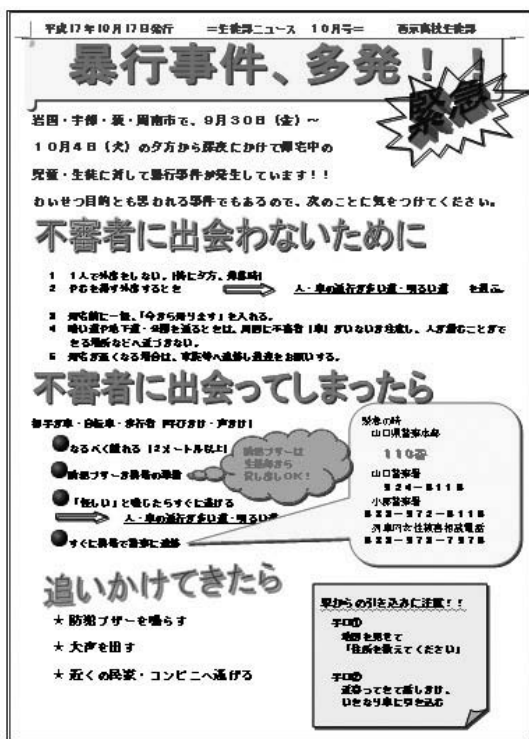 平成17年10月17日発行 =生徒部ニュース 10月号= 西京高校生徒部
暴行事件、多発!!
緊急
岩国・宇部・萩・周南市で、9月30日(金)〜
10月4日(火)の夕方から深夜にかけて帰宅中の
児童・生徒に対して暴行事件が発生しています!!
わいせつ目的とも思われる事件でもあるので、次のことに気をつけてください。
不審者に出会わないために
1 1人で外出をしない。(特に夕方、
2 やむを得ず外出するときは 人・車の通行が多い道・明るい道 を選ぶ。
3 帰宅前に一報、「今から帰ります」を入れる。
4 暗い道や地下道・公園を通るときは、周囲に不審者(車)がいないか注意し、人が潜むことができる場所などへ近づかない。
5 帰宅が遅くなる場合は、家族等へ連絡し送迎をお願いする。
不審者に出会ってしまったら
相手が車・自転車・歩行者(呼びかけ・声かけ)
なるべく離れる(2メートル以上)
防犯ブザーか携帯の準備
防犯ブザーは
生徒部から
貸し出しOK!
「怪しい」と感じたらすぐに逃げる
人・車の通行が多い道・明るい道
すぐに携帯で警察に連絡
緊急の時
山口県警察本部
110番
山口警察署
924-0110
小郡警察署
083-972-0110
列車内女性被害相談電話
083-973-7576
追いかけてきたら
★ 防犯ブザーを鳴らす
★ 大声を出す
★ 近くの民家・コンビニへ逃げる
車からの引き込みに注意!!
手口①
地図を見せて
「住所を教えてください」
手口②
近寄ってきて話しかけ、
いきなり車に引き込む